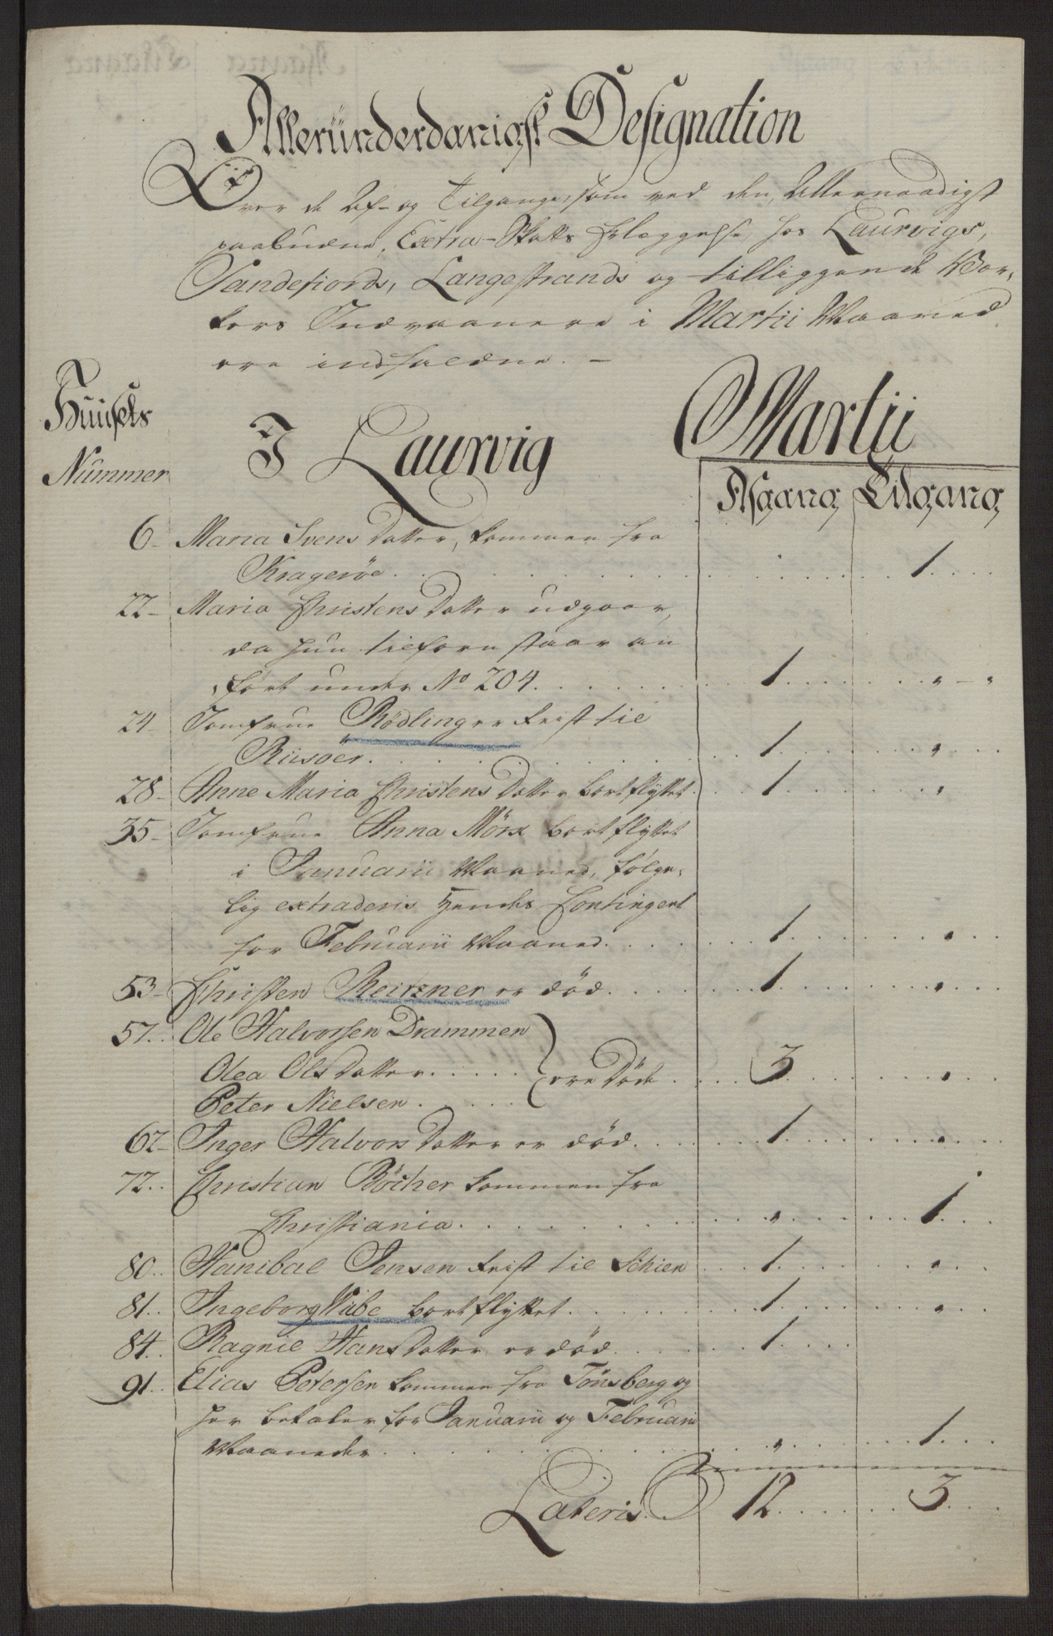 Alleründerdanigst Designation
Over de Af- og Tilgange, som ved den Allernaadigst
paabudne Extra-Skatts Erlæggelse hos Laurvigs,
Sandefiords, Langestrands og tilliggende Wor-
kers Indvaanere i Martii Maaned
ere indfaldne. -
Huusets
Nummer
I Laurvig
Martii
Afgang Tilgang
6 Maria Svens Datter, kommen fra
Kragerøe . . . . 1
22 Maria Christens Datter udgaar,
da hun tilforn staar an
ført under No 204. . . . 1
24 Jomfrue Rødlinger reist til
Riisøer . . . . 1
28 Anne Maria Christens Datter bortflyttet 1
35 Jomfrue Anna Mörk bortflyttet
i Januarii Maaned, følge-
lig extraderis hendes Contingent
for Februarii Maaned. . . . 1
53 Christen Reirsner er død. . . . 1
57 Ole Halvorsen Drammen
Olea Ols Datter . . . . ere døde . . . 3
Peter Nielsen . . . .
62 Inger Halvors Datter er død. . . . 1
72 Christian Böcher kommen fra
Christiania . . . . 1
80 Hanibal Jensen reist til Schien 1
81 Ingeborg Wibe bortflyttet . . . . 1
84 Ragnil Hans Datter er død . . . . 1
91 Elias Petersen kommen fra Tönsberg og
her betaler for Januarii og Februarii
Maaneder . . . . 1
Lateris 12 . . . . 3